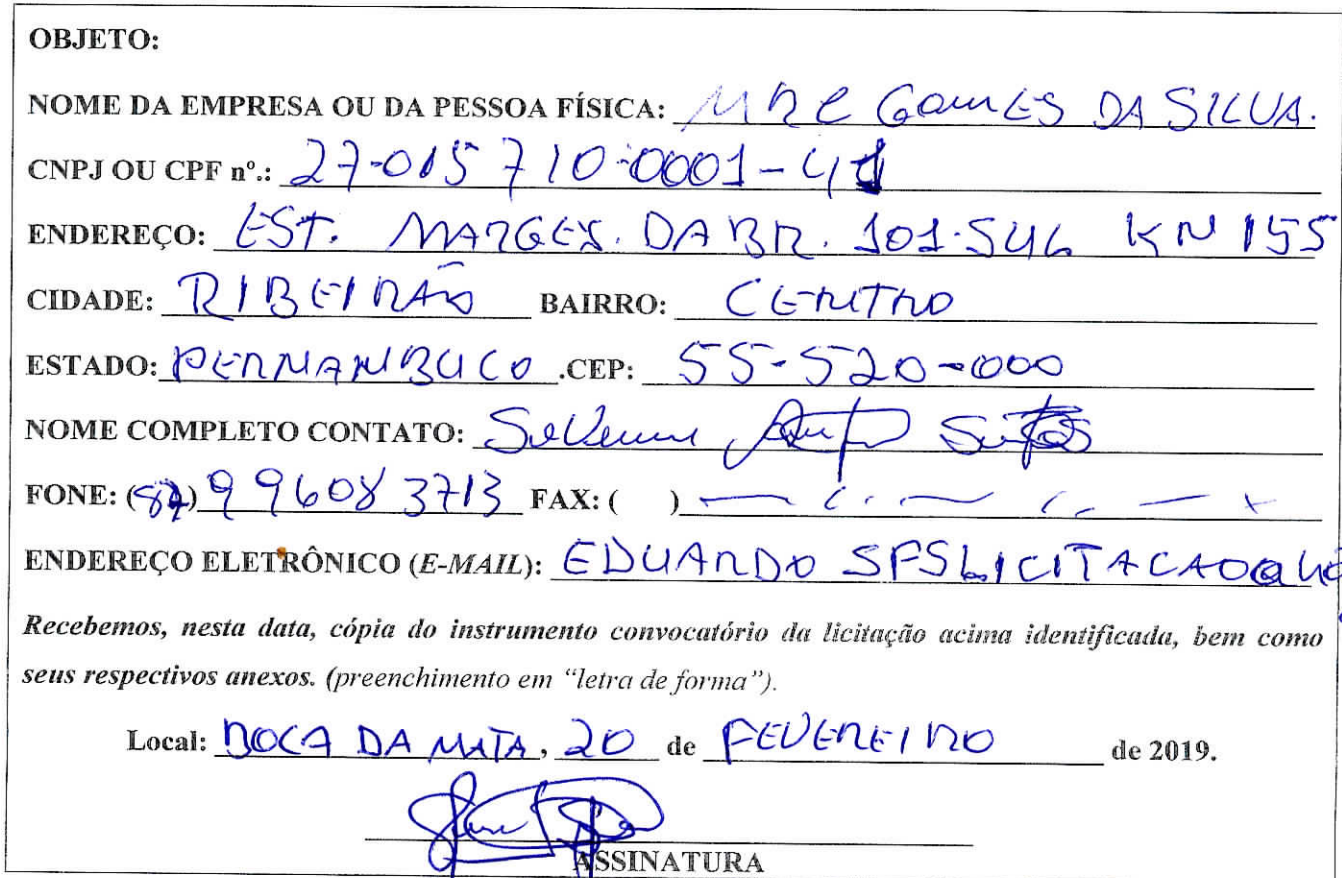 OBJETO:
NOME DA EMPRESA OU DA PESSOA FÍSICA: MRC GOMES DA SILVA.
CNPJ OU CPF nº.: 27-015 710-0001-41
ENDEREÇO: EST. MARGES. DA BR. 101-SUL KM 155
CIDADE: RIBEIRÃO BAIRRO: CENTRO
ESTADO: PERNAMBUCO .CEP: 55-520-000
NOME COMPLETO CONTATO:
FONE: (87) 9 9608 3713 FAX: ( )
ENDEREÇO ELETRÔNICO (E-MAIL): EDUARDO SFSLICITACAO@
Recebemos, nesta data, cópia do instrumento convocatório da licitação acima identificada, bem como
seus respectivos anexos. (preenchimento em “letra de forma”).
Local: BOCA DA MATA, 20 de FEVEREIRO de 2019.
ASSINATURA